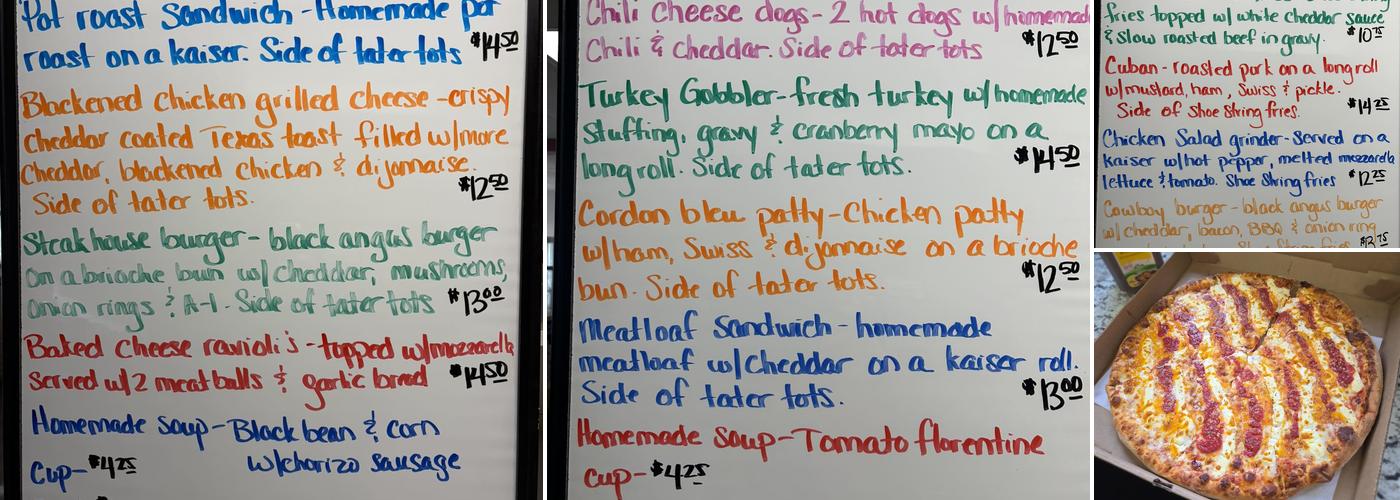 Pot roast Sandwich - Homemade pot
roast on a kaiser. Side of tater tots $14.50
Blackened chicken grilled cheese - crispy
cheddar coated Texas toast filled w/more
cheddar, blackened chicken & dijonnaise.
Side of tater tots. $12.50
Steakhouse burger - black angus burger
on a brioche bun w/ cheddar, mushrooms,
onion rings & A-1. Side of tater tots $13.00
Baked cheese ravioli's - topped w/mozzarella
Served w/2 meatballs & garlic bread $14.50
Homemade soup - Black bean & corn
w/chorizo sausage
Cup - $4.25
Chili cheese dogs - 2 hot dogs w/homemade
Chili & cheddar. Side of tater tots $12.50
Turkey Gobbler - fresh turkey w/homemade
stuffing, gravy & cranberry mayo on a
long roll. Side of tater tots. $14.50
Cordon bleu patty - Chicken patty
w/ham, Swiss & dijonnaise on a brioche
bun. Side of tater tots. $12.50
Meatloaf Sandwich - homemade
meatloaf w/cheddar on a kaiser roll.
Side of tater tots. $13.00
Homemade Soup - Tomato florentine
Cup - $4.25
fries topped w/ white cheddar sauce
& slow roasted beef in gravy. $10.75
Cuban - roasted pork on a long roll
w/mustard, ham, Swiss & pickle.
Side of Shoe String fries. $14.25
Chicken Salad grinder - Served on a
kaiser w/hot pepper, melted mozzarella
lettuce & tomato. Shoe String fries $12.25
Cowboy burger - black angus burger
w/ cheddar, bacon, BBQ & onion ring